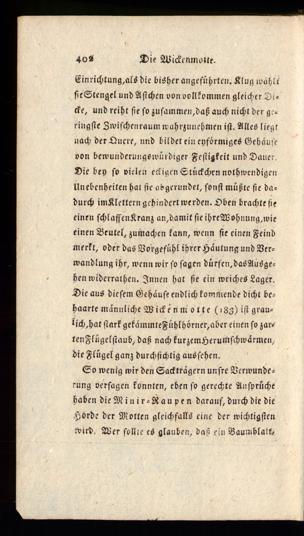 402 Die Wickenmotte.
Einrichtung, als die bisher angeführten. Klug wählt
sie Stengel und Ästchen von vollkommen gleicher Di-
cke, und reiht sie so zusammen, daß auch nicht der ge-
ringste Zwischenraum wahrzunehmen ist. Alles liegt
nach der Quere, und bildet ein eyförmiges Gehäuse
von bewunderungswürdiger Festigkeit und Dauer.
Die bey so vielen eckigen Stückchen nothwendigen
Unebenheiten hat sie abgerundet, sonst müßte sie da-
durch im Klettern gehindert werden. Oben brachte sie
einen schlaffen Kranz an, damit sie ihre Wohnung, wie
einen Beutel, zumachen kann, wenn sie einen Feind
merkt, oder das Vorgefühl ihrer Häutung und Ver-
wandlung ihr, wenn wir so sagen dürfen, das Ausge-
hen widerrathen. Innen hat sie ein weiches Lager.
Die aus diesem Gehäuse endlich kommende dicht be-
haarte männliche Wickenmotte (183) ist grau-
lich, hat stark gekämmte Fühlhörner, aber einen so zar-
ten Flügelstaub, daß nach kurzem Herumschwärmen,
die Flügel ganz durchsichtig aussehen.
So wenig wir den Sackträgern unsre Verwunde-
rung versagen konnten, eben so gerechte Ansprüche
haben die Minir-Raupen darauf, durch die die
Horde der Motten gleichfalls eine der wichtigsten
wird. Wer sollte es glauben, daß ein Baumblatt,